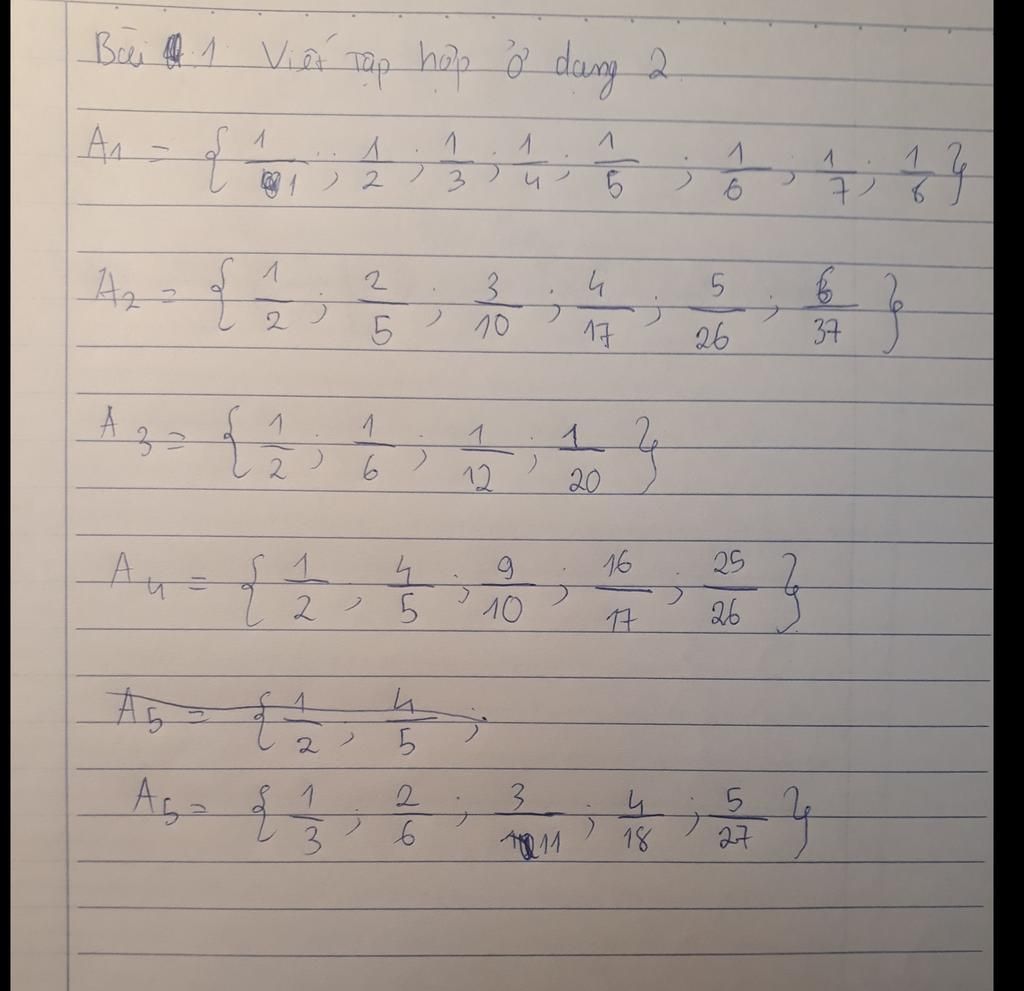 Bài 1 Viết tập hợp ở dạng 2
A1 = { 1/1 ; 1/2 ; 1/3 ; 1/4 ; 1/5 ; 1/6 ; 1/7 ; 1/8 }
A2 = { 1/2 ; 2/5 ; 3/10 ; 4/17 ; 5/26 ; 6/37 }
A3 = { 1/2 ; 1/6 ; 1/12 ; 1/20 }
A4 = { 1/2 ; 4/5 ; 9/10 ; 16/17 ; 25/26 }
A5 = { 1/2 ; 4/5 ;
A5 = { 1/3 ; 2/6 ; 3/11 ; 4/18 ; 5/27 }